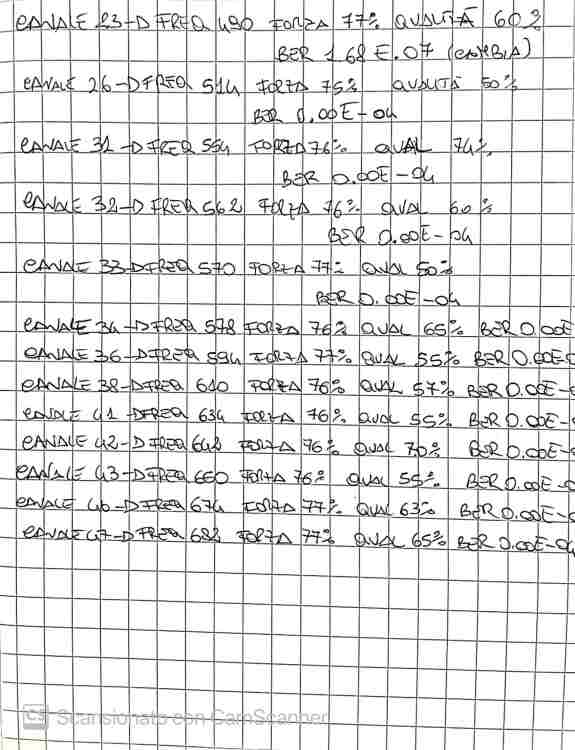 CANALE 23-D FREQ 490 FORZA 77% QUALITÀ 60%
BER 1.68 E.07 (CAMBIA)
CANALE 26-D FREQ 514 FORZA 75% QUALITÀ 50%
BER 0.00E-04
CANALE 31-D FREQ 554 FORZA 76% QUAL 74%
BER 0.00E-04
CANALE 32-D FREQ 562 FORZA 76% QUAL 60%
BER 0.00E-04
CANALE 33-D FREQ 570 FORZA 77% QUAL 50%
BER 0.00E-04
CANALE 34-D FREQ 578 FORZA 76% QUAL 65% BER 0.00E
CANALE 36-D FREQ 594 FORZA 77% QUAL 55% BER 0.00E-0
CANALE 38-D FREQ 610 FORZA 76% QUAL 57% BER 0.00E-0
CANALE 41-D FREQ 634 FORZA 76% QUAL 55% BER 0.00E-0
CANALE 42-D FREQ 642 FORZA 76% QUAL 70% BER 0.00E-0
CANALE 43-D FREQ 650 FORZA 76% QUAL 55% BER 0.00E-0
CANALE 46-D FREQ 674 FORZA 77% QUAL 63% BER 0.00E-0
CANALE 47-D FREQ 682 FORZA 77% QUAL 65% BER 0.00E-04
CS Scansionato con CamScanner